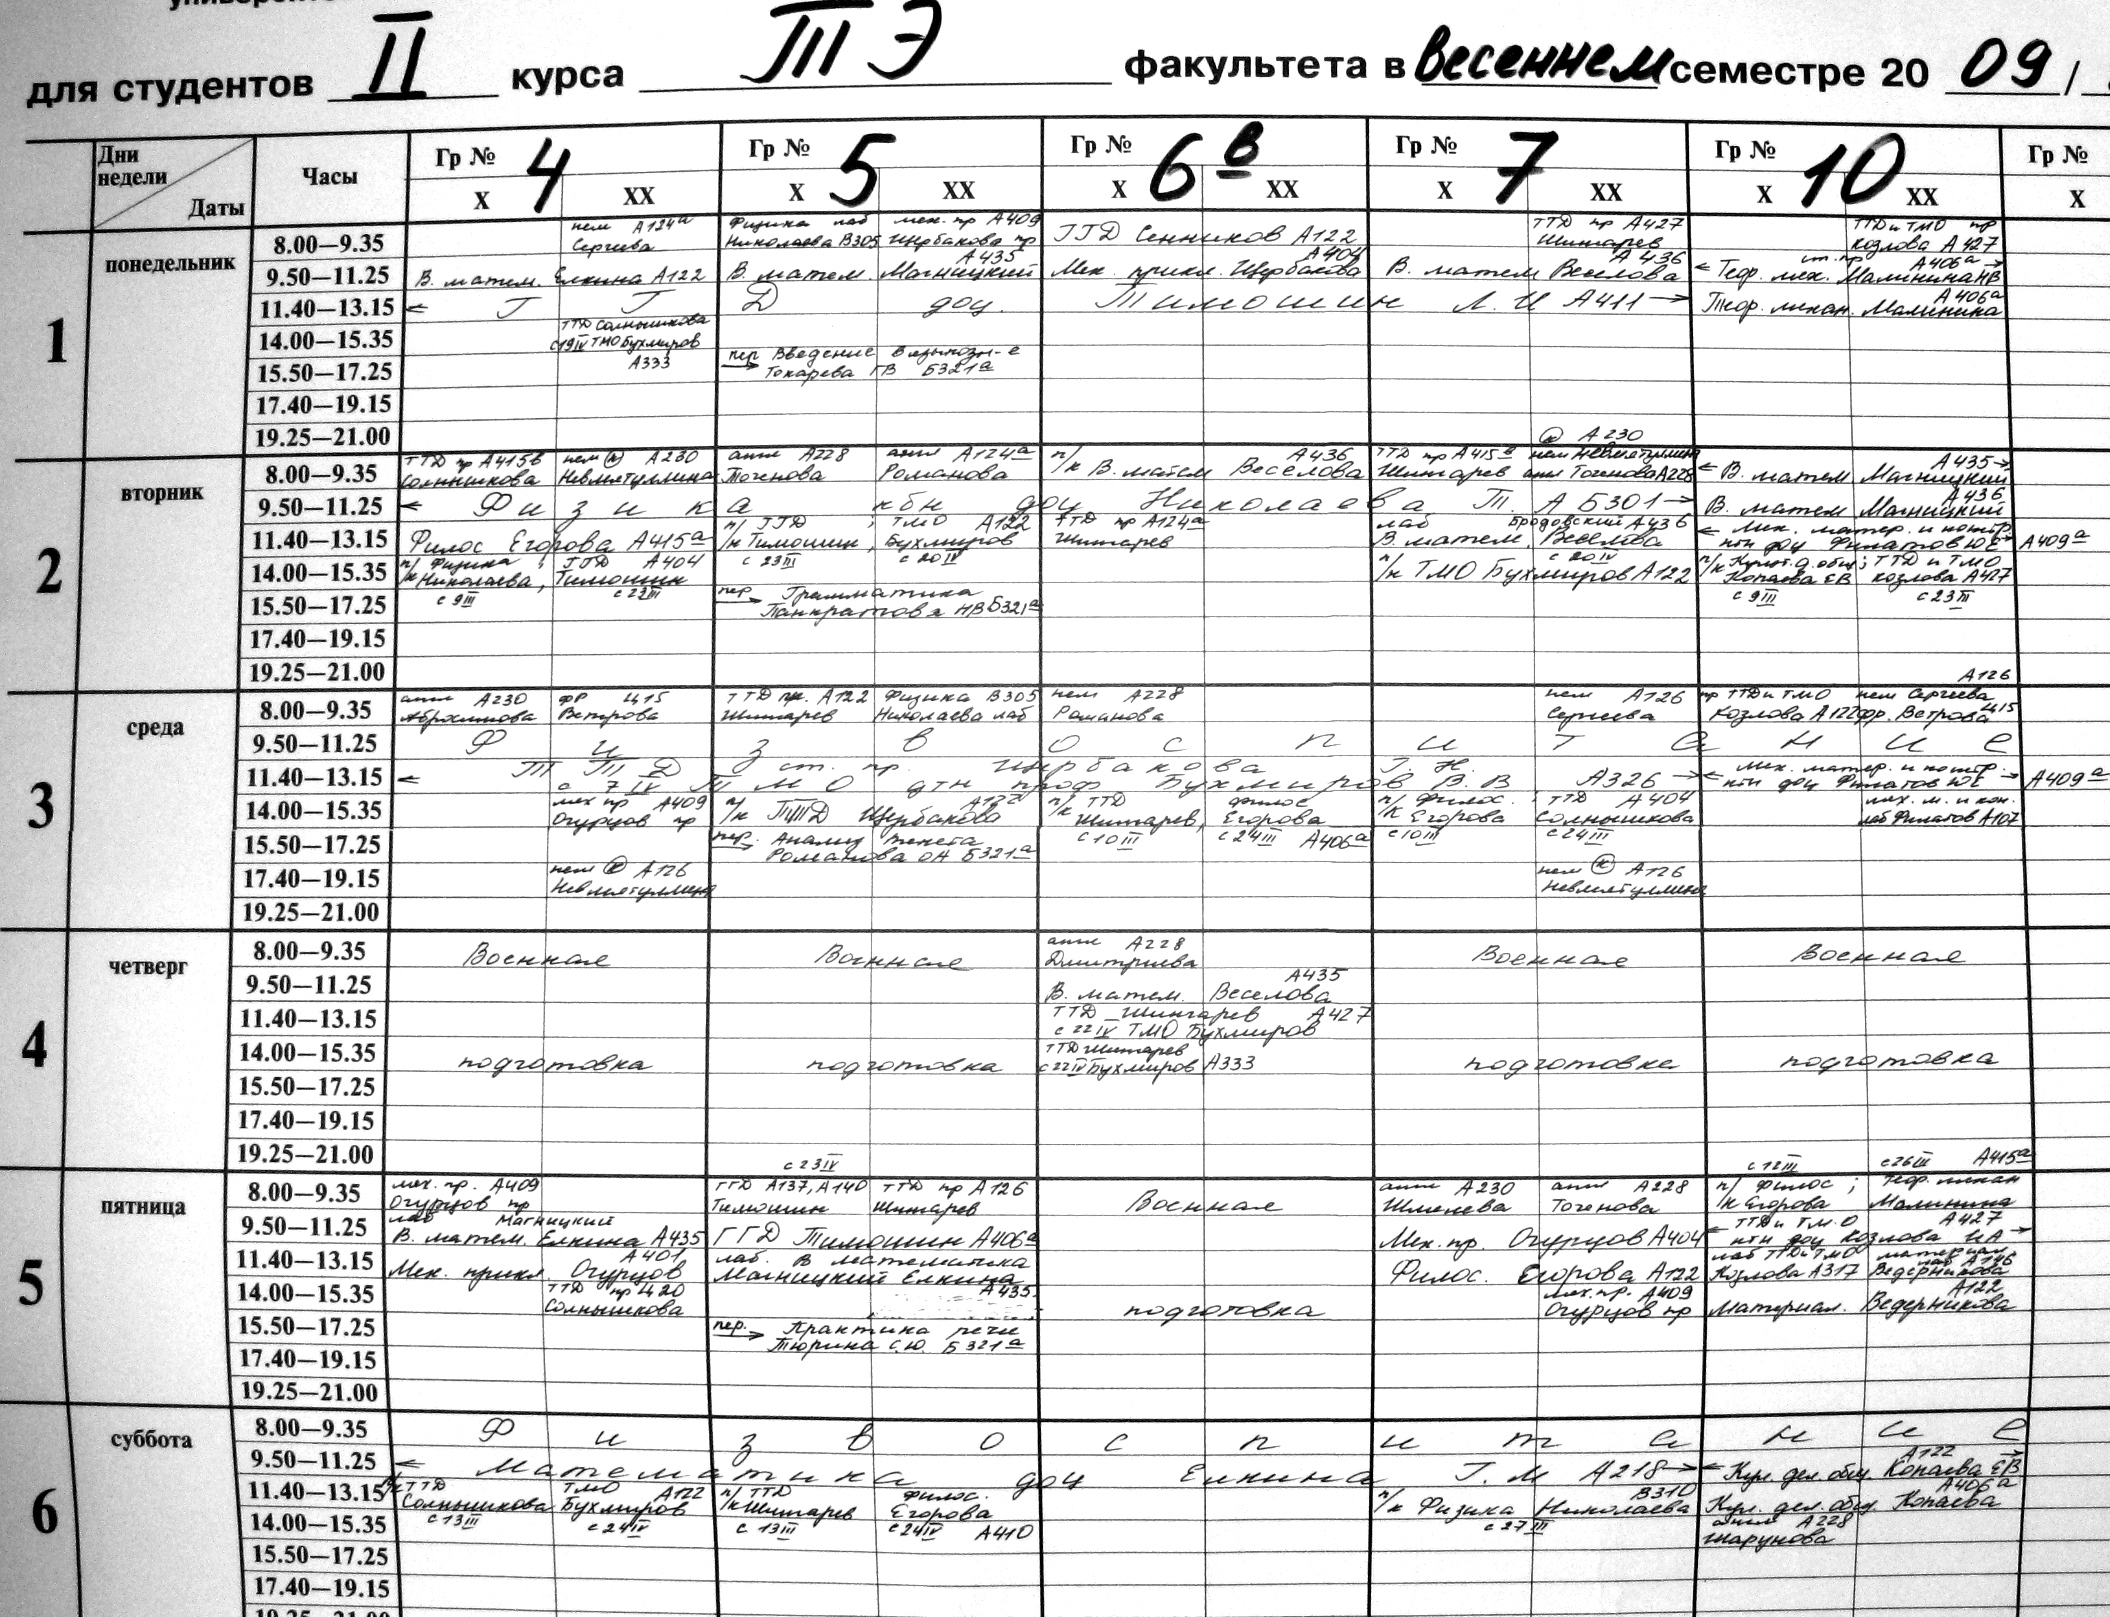 для студентов II курса ТЭ факультета в весеннем семестре 20 09 /
Дни недели Даты Часы Гр № 4 Гр № 5 Гр № 6в Гр № 7 Гр № 10 Гр №
X XX X XX X XX X XX X XX X
1 понедельник
8.00—9.35
нем А124а Сергеева
Физика лаб Николаева В305
мех. пр А409 Щербакова пр
ГГД Сенников А122
ТТД пр А427 Шингарев
ТТД и ТМО пр Козлова А427
9.50—11.25
В. матем. Елкина А122
В. матем. Магницкий А435
Мех. прикл. Щербакова А404
В. матем Веселова А436
← Теор. мех. Малинина НВ А406а →
11.40—13.15
← Г Г Д доц. Тимошин Л. И А411 →
Теор. механ. Малинина А406а
14.00—15.35
ТТД Солнышкова
с 19 IV ТМО Бухмиров
А333
15.50—17.25
пер Введение в языкозн-е
Токарева ГВ Б321а
17.40—19.15
19.25—21.00
2 вторник
8.00—9.35
ТТД пр А415в Солнышкова
нем (н) А230 Невметуллина
англ А228 Точенова
англ А124а Романова
п/к В. матем Веселова А436
ТТД пр А415а Шингарев
(н) А230
нем Невметуллина
англ Точенова А228
← В. матем Магницкий А435 →
9.50—11.25
← Физика кфн доц Николаева Т. А Б301 →
В. матем Магницкий А436
11.40—13.15
Филос Егорова А415а
п/к ГГД Тимошин, ТМО Бухмиров А122
с 23 III с 20 IV
ТТД пр А124а Шингарев
лаб Бродовский А436
В. матем. Веселова
← Мех. матер. и констр.
ктн доц Филатов ЮЕ → А409а
14.00—15.35
п/к Физика Николаева, ГГД Тимошин А404
с 9 III с 23 III
с 20 IV
п/к ТМО Бухмиров А122
п/к Культ. д. общ; ТТД и ТМО
Копаева ЕВ Козлова А427
с 9 III с 23 III
15.50—17.25
пер. Грамматика
Панкратова НВ Б321а
17.40—19.15
19.25—21.00
3 среда
8.00—9.35
англ А230 Абросимова
фр Ц15 Ветрова
ТТД пр. А122 Шингарев
Физика В305 Николаева лаб
нем А228 Романова
нем А126 Сергеева
пр ТТД и ТМО Козлова А122
А126
нем Сергеева
фр. Ветрова Ц15
9.50—11.25
Ф и з в о с п и т а н и е
11.40—13.15
← ТТД ст. пр. Щербакова Г. Н.
с 7 IV ТМО дтн проф Бухмиров В. В А326 →
← Мех. матер. и констр.
ктн доц Филатов ЮЕ → А409а
14.00—15.35
мех пр А409 Огурцов пр
п/к ТТД Щербакова А122
п/к ТТД Шингарев, филос Егорова
с 10 III с 24 III А406а
п/к Филос. Егорова ; ТТД Солнышкова А404
с 10 III с 24 III
мех. м. и кон. лаб Филатов А107
15.50—17.25
пер. Анализ текста
Романова ОА Б321а
17.40—19.15
нем (н) А126 Невметуллина
нем (н) А126 Невметуллина
19.25—21.00
4 четверг
8.00—9.35
Военная Военная
англ А228 Дмитриева
Военная Военная
9.50—11.25
В. матем. Веселова А435
11.40—13.15
ТТД Шингарев А427
с 22 IV ТМО Бухмиров
14.00—15.35
подготовка подготовка
ТТД Шингарев
с 22 IV Бухмиров А333
подготовка подготовка
15.50—17.25
17.40—19.15
19.25—21.00
5 пятница
8.00—9.35
мех. пр. А409 Огурцов пр
с 23 IV
ГГД А137, А140 Тимошин
ТТД пр А126 Шингарев
Военная
англ А230 Шмелева
англ А228 Точенова
с 12 III с 26 III А415а
п/к филос ; Егорова Теор. механ Малинина
9.50—11.25
лаб Магницкий
В. матем. Елкина А435
ГГД Тимошин А406а
Мех. пр. Огурцов А404
← ТТД и Т.М.О А427
ктн доц Козлова ИА →
11.40—13.15
Мех. прикл. Огурцов А401
лаб. В математика
Магницкий Елкина
А435
Филос. Егорова А122
лаб ТТД и ТМО Козлова А317
материал лаб А146 Ведерникова
14.00—15.35
ТТД пр Ц20 Солнышкова
подготовка
мех. пр. А409 Огурцов пр
Материал. Ведерникова А122
15.50—17.25
пер. Практика речи
Тюрина С.Ю. Б321а
17.40—19.15
19.25—21.00
6 суббота
8.00—9.35
Ф и з в о с п и т а н и е
9.50—11.25
← Математика доц Елкина Г. М А218 →
← Кул. дел. общ Копаева ЕВ А122 →
11.40—13.15
п/к ТТД Солнышкова ТМО Бухмиров А122
с 13 III с 24 IV
п/к ТТД Шингарев филос. Егорова
с 13 III с 24 IV А410
п/к Физика Николаева В310
с 27 III
Кул. дел. общ Копаева А406а
14.00—15.35
англ А228 Шарунова
15.50—17.25
17.40—19.15
19.25—21.00